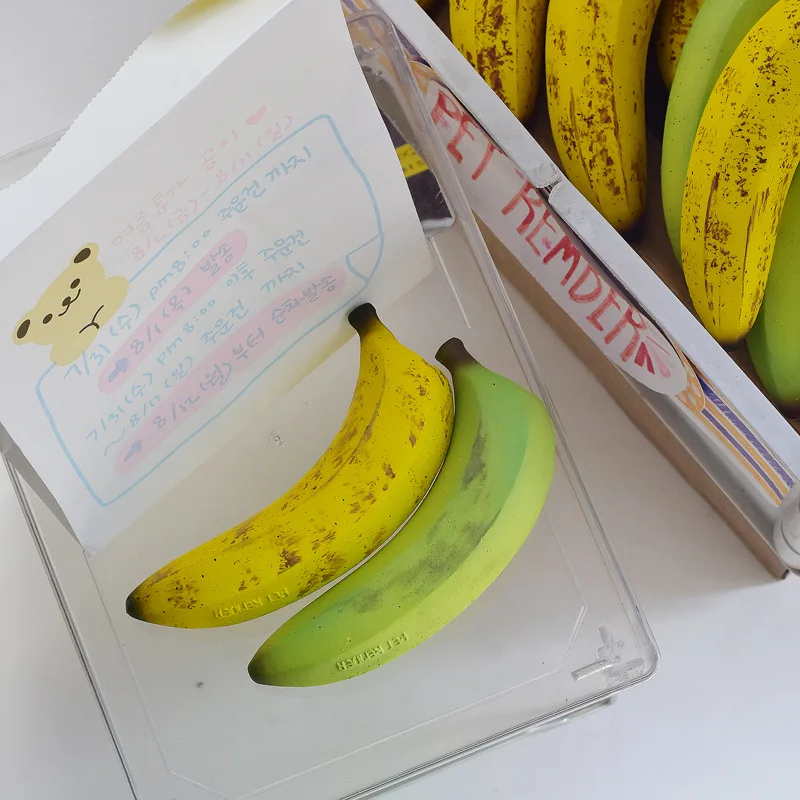 여름휴가 공지 ♥
8/2 (금) - 8/11 (일)
7/31 (수) pm 8:00 주문건 까지
➡ 8/1 (목) 발송
7/31 (수) pm 8:00 이후 주문건
~ 8/11 (일) 주문건 까지
➡ 8/12 (월) 부터 순차발송
PET REMDER